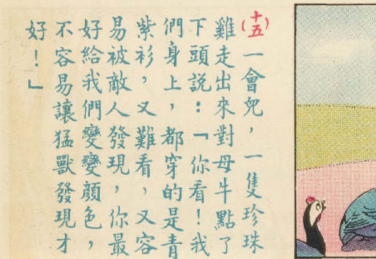 (十五)一會兒，一隻珍珠
雞走出來對母牛點了
下頭說：「你看！我
們身上，都穿的是青
紫衫，又難看，又容
易被敵人發現，你最
好給我們變變顏色，
不容易讓猛獸發現才
好！」